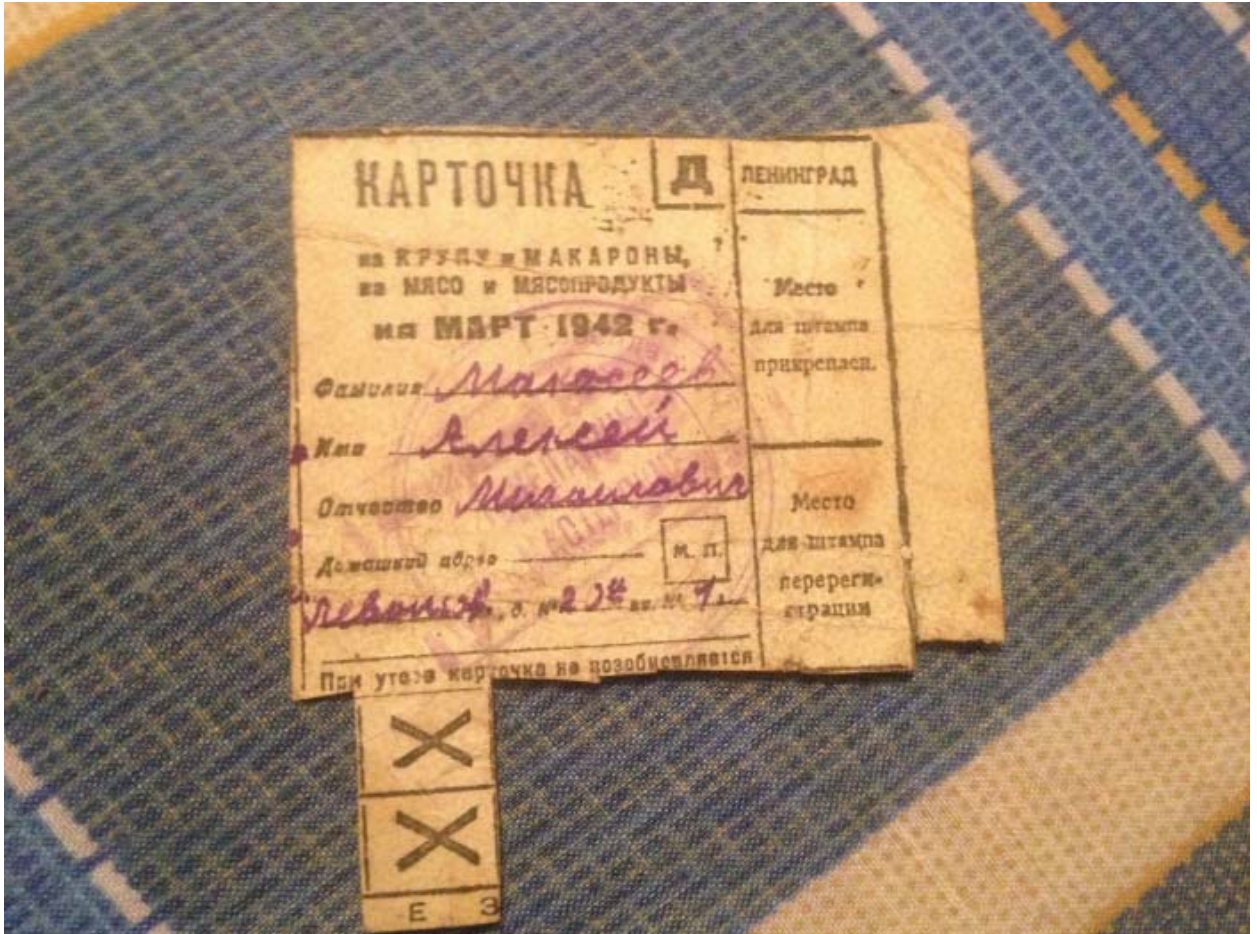 КАРТОЧКА
Д
на КРУПУ и МАКАРОНЫ,
на МЯСО и МЯСОПРОДУКТЫ
на МАРТ 1942 г.
Фамилия
Имя Алексей
Отчество Михайлович
Домашний адрес
М. П.
д. № кв. №
При утере карточка не возобновляется
ЛЕНИНГРАД
Место
для штампа
прикреплен.
Место
для штампа
перереги-
страции
Х
Х
Е З